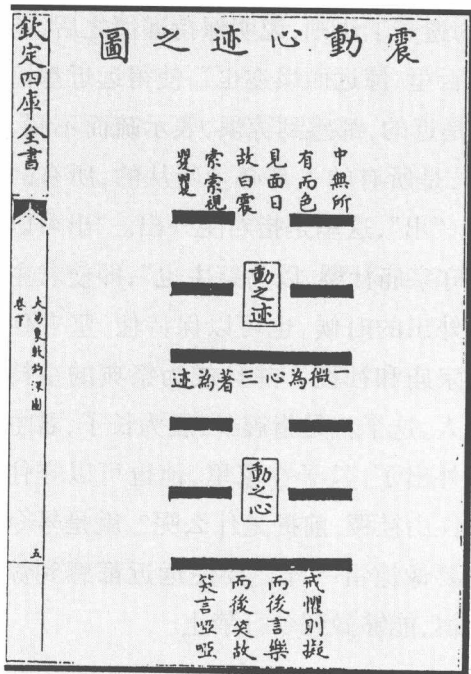 震動心迹之圖
中無所
有而色
見面目
故曰震
索索視
矍矍
動之迹
微為心一著為迹
動之心
戒懼則擬
而後言樂
而後笑故
笑言啞啞
欽定四庫全書
大易象數鈎深圖
卷下
五